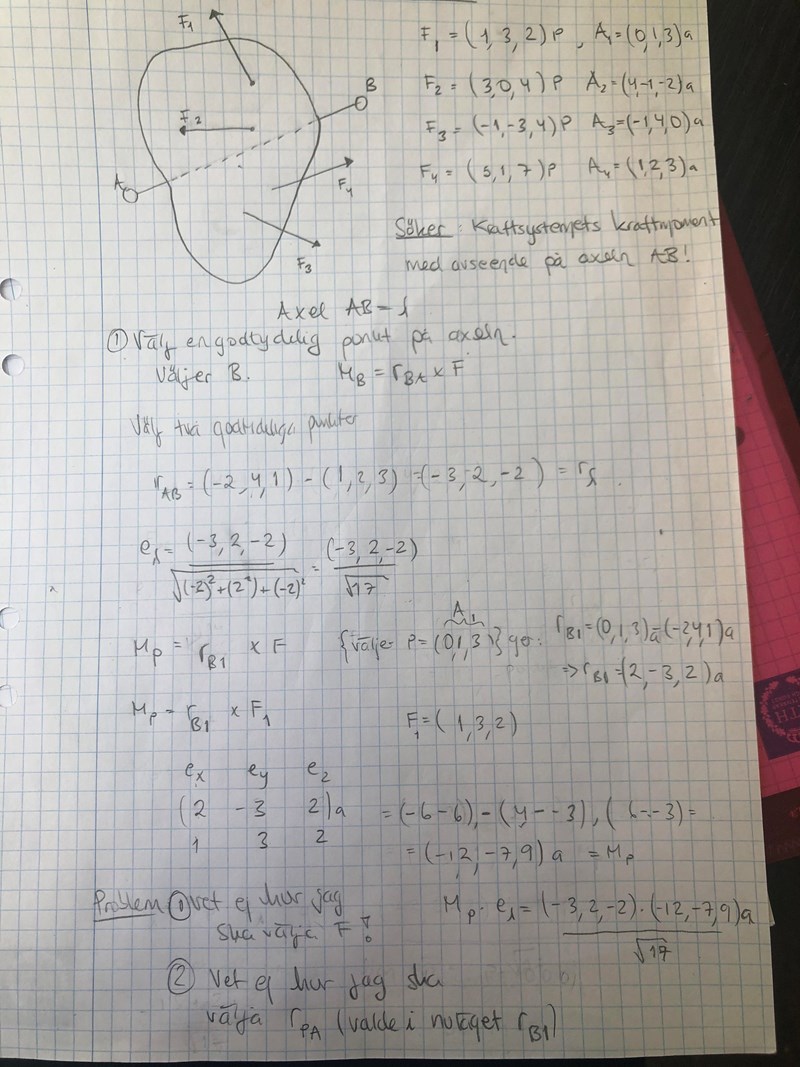 F₁
B
F₂
A
F₄
F₃
F₁ = (1, 3, 2) P , A₁ = (0, 1, 3)a
F₂ = (3, 0, 4) P A₂ = (4, -1, -2)a
F₃ = (-1, -3, 4) P A₃ = (-1, 4, 0)a
F₄ = (5, 1, 7) P A₄ = (1, 2, 3)a
Söker: Kraftsystemets kraftmoment
med avseende på axeln AB!
Axel AB = λ
① Välj en godtydelig punkt på axeln.
Väljer B. M_B = r_BA × F
Välj två godtideliga punkter
r_AB = (-2, 4, 1) - (1, 2, 3) = (-3, 2, -2) = r_λ .
e_λ = (-3, 2, -2) / √((-2)² + (2²) + (-2)² = (-3, 2, -2) / √17
A₁
M_p = r_B1 × F {väljer P = (0, 1, 3)} ger: r_B1 = (0, 1, 3)a - (-2, 4, 1)a
=> r_B1 = (2, -3, 2)a
M_p = r_B1 × F₁ F₁ = (1, 3, 2)
e_x e_y e_z
(2 -3 2)a = (-6-6), -(4--3), (6--3) =
1 3 2
= (-12, -7, 9) a = M_p
Problem ① vet ej hur jag
ska välja F!
M_p · e_λ = (-3, 2, -2) · (-12, -7, 9)a / √17
② Vet ej hur jag ska
välja r_PA (valde i nuläget r_B1)